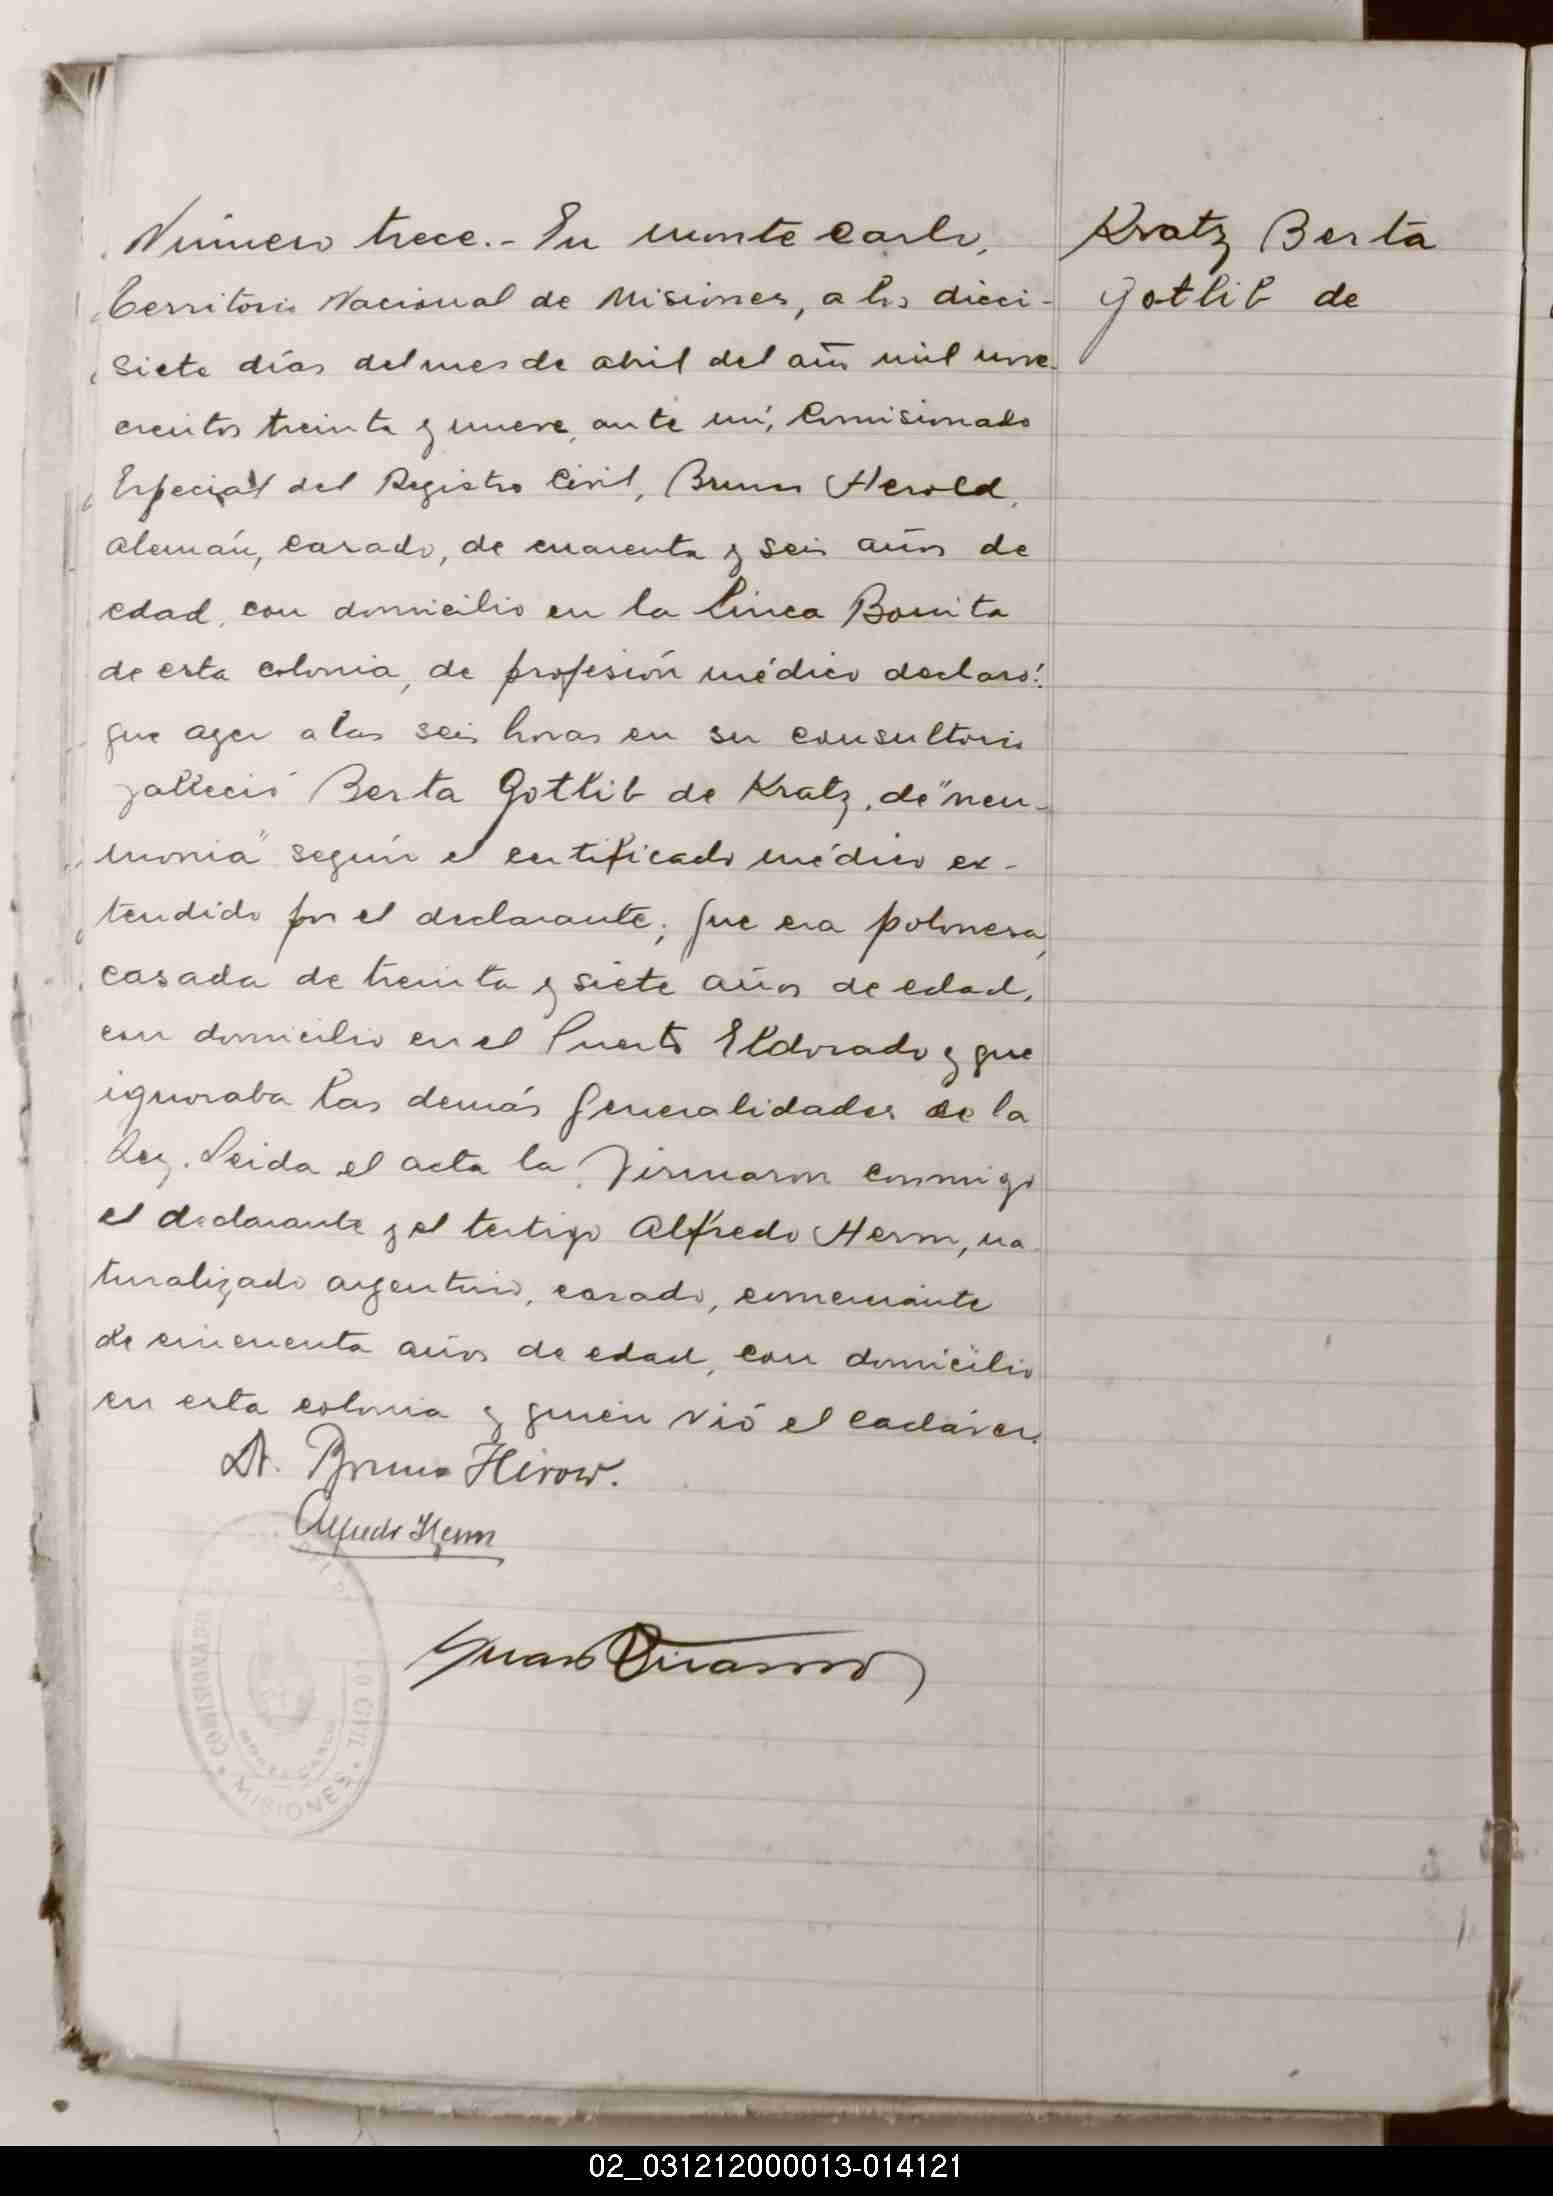 Número trece.- En Monte Carlo,
Territorio Nacional de Misiones, a los dieci-
siete días del mes de abril del año mil nove-
cientos treinta y nueve, ante mí, Comisionado
Especial del Registro Civil, Bruno Herold,
alemán, casado, de cuarenta y seis años de
edad, con domicilio en la Linea Bonita
de esta colonia, de profesión médico declaró:
que ayer a las seis horas en su consultorio
falleció Berta Gotlib de Kratz, de "neu-
monia" según el certificado médico ex-
tendido por el declarante; que era polonesa,
casada de treinta y siete años de edad,
con domicilio en el Puerto Eldorado y que
ignoraba las demás generalidades de la
Ley. Leida el acta la firmaron conmigo
el declarante y el testigo Alfredo Herm, na-
turalizado argentino, casado, comerciante
de cincuenta años de edad, con domicilio
en esta colonia y quien vió el cadáver.
Kratz Berta
Gotlib de
Dr. Bruno
Alfredo Herm
COMISIONADO
CIVIL
MONTE CARLO
MISIONES
02_031212000013-014121